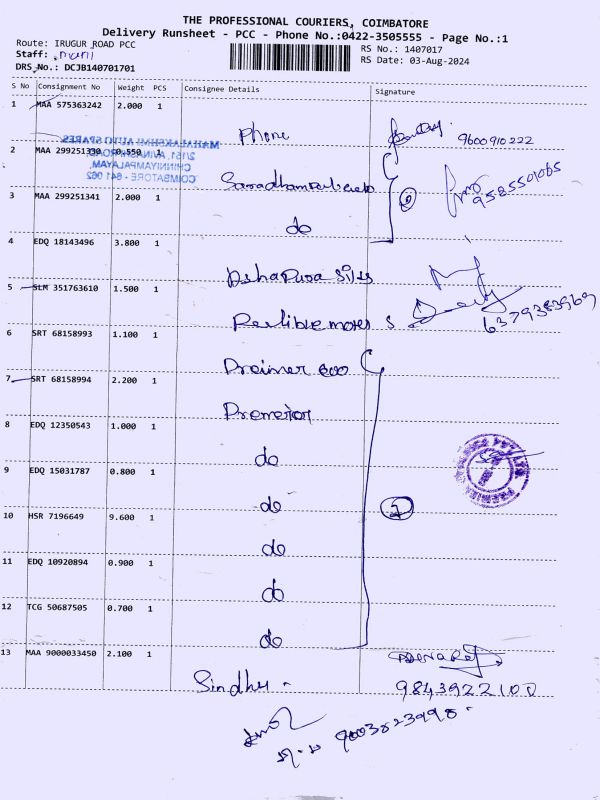 THE PROFESSIONAL COURIERS, COIMBATORE
Delivery Runsheet - PCC - Phone No.:0422-3505555 - Page No.:1
Route: IRUGUR ROAD PCC
RS No.: 1407017
Staff:
RS Date: 03-Aug-2024
DRS No.: DCJB140701701
S No Consignment No Weight PCS Consignee Details Signature
1 MAA 575363242 2.000 1
Phone 9600910222
MAHALAKSHMI AUTO SPARES
2 MAA 299251330 0.550 1
2/151, AVINASHI ROAD,
CHINNIYAMPALAYAM,
COIMBATORE - 641 062
9585501065
3 MAA 299251341 2.000 1
do
4 EDQ 18143496 3.800 1
5 SLM 351763610 1.500 1
6379383969
6 SRT 68158993 1.100 1
7 SRT 68158994 2.200 1
8 EDQ 12350543 1.000 1
do
9 EDQ 15031787 0.800 1
do
10 HSR 7196649 9.600 1
do
11 EDQ 10920894 0.900 1
do
12 TCG 50687505 0.700 1
do
13 MAA 9000033450 2.100 1
Sindhu
9843922100
9003823998